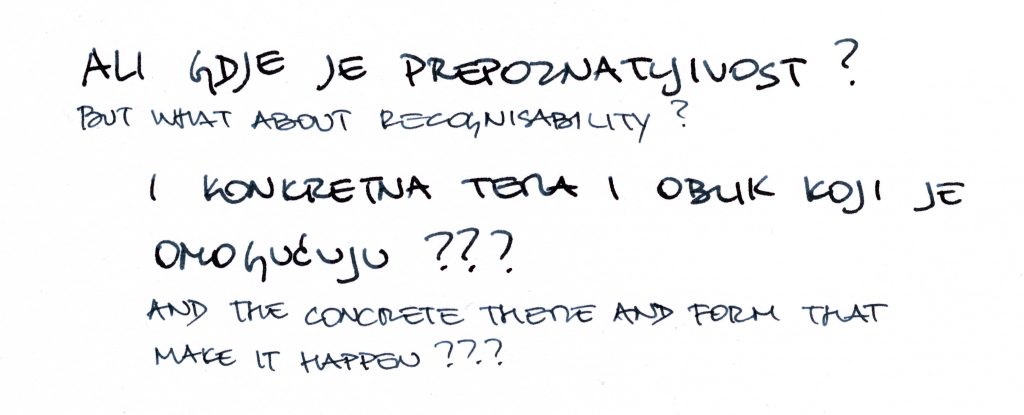 ALI GDJE JE PREPOZNATLJIVOST ?
BUT WHAT ABOUT RECOGNISABILITY ?
I KONKRETNA TEMA I OBLIK KOJI JE
OMOGUĆUJU ???
AND THE CONCRETE THEME AND FORM THAT
MAKE IT HAPPEN ???